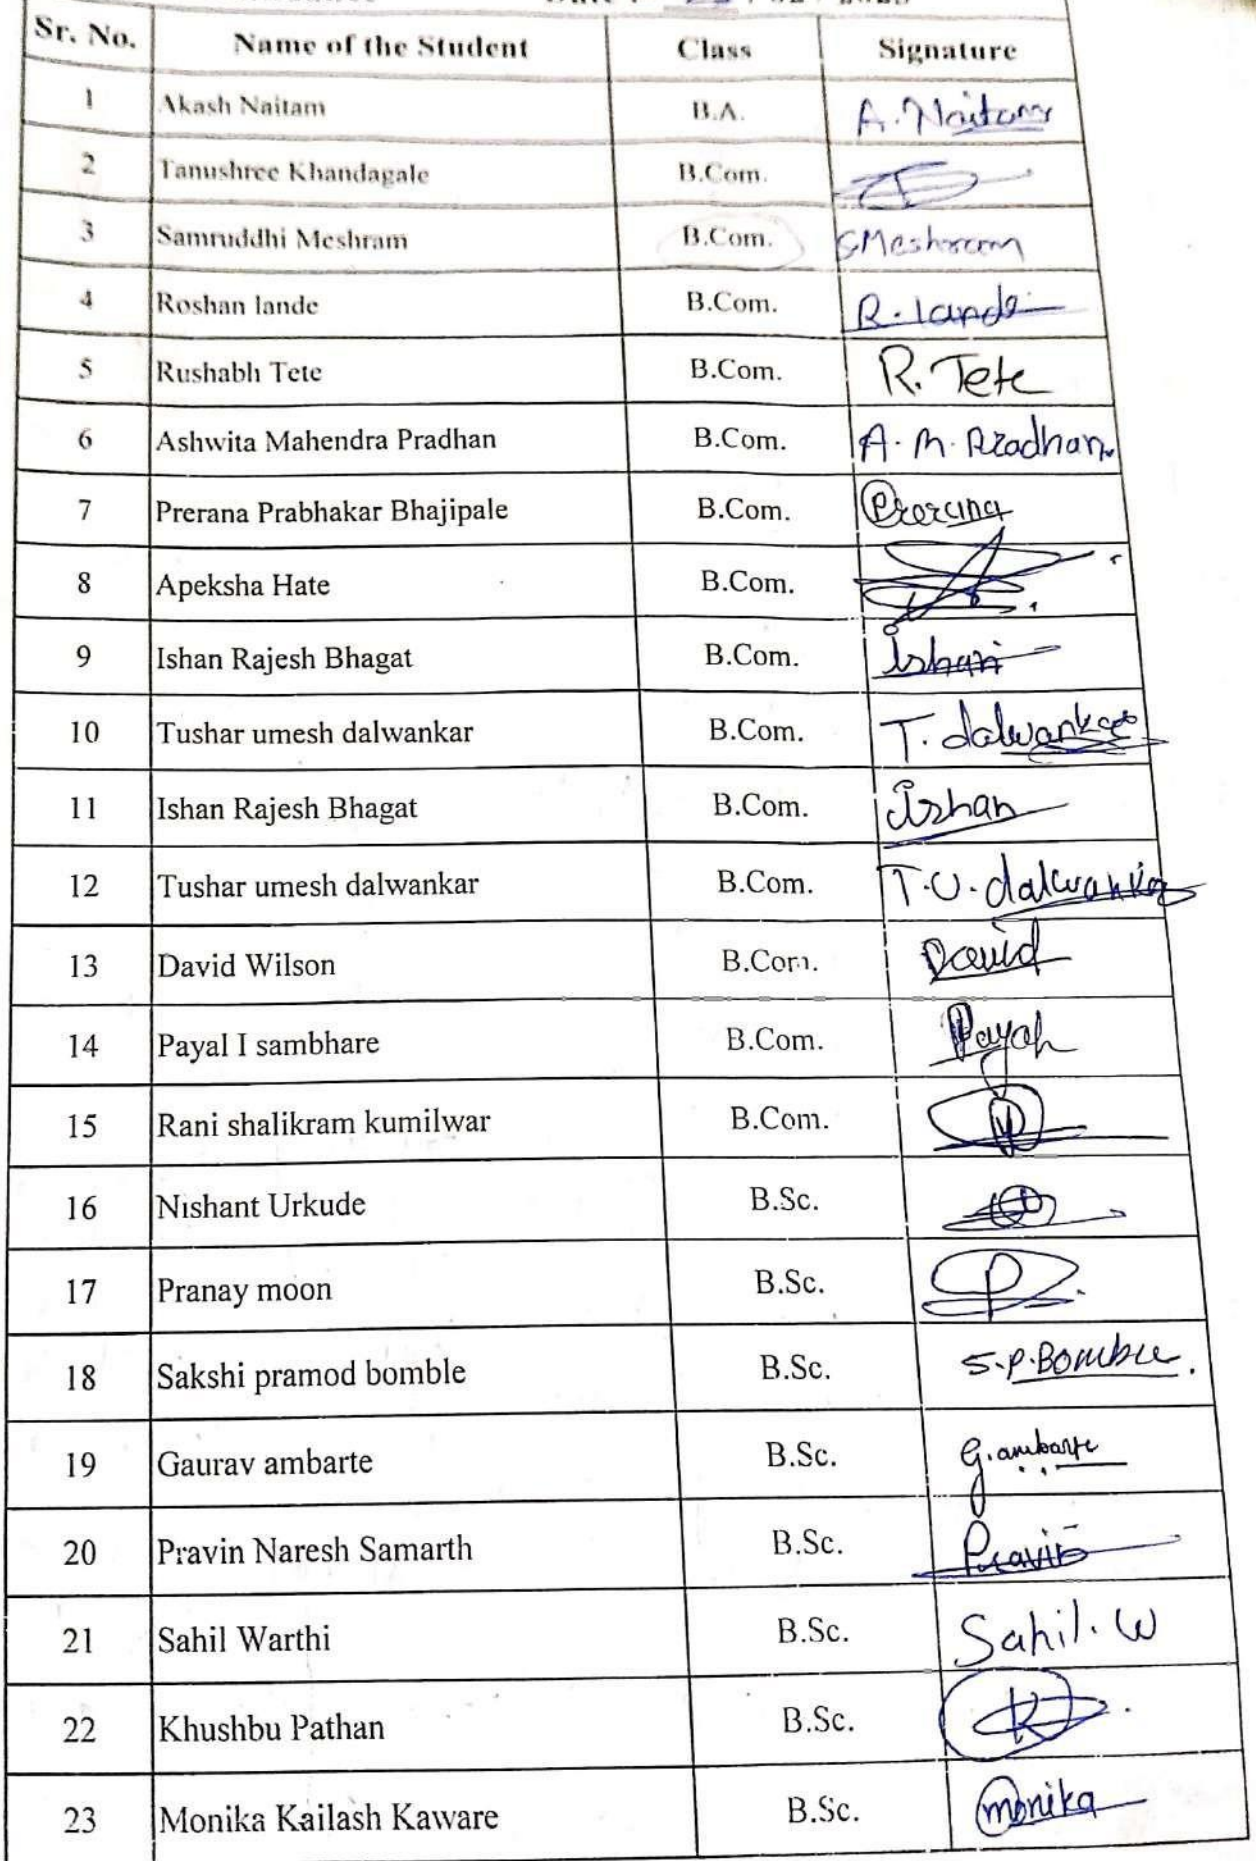 Sr. No. Name of the Student Class Signature
1 Akash Naitam B.A. A. Naitam
2 Tanushree Khandagale B.Com.
3 Samruddhi Meshram B.Com. SMeshram
4 Roshan lande B.Com. R. lande
5 Rushabh Tete B.Com. R. Tete
6 Ashwita Mahendra Pradhan B.Com. A. M. Pradhan
7 Prerana Prabhakar Bhajipale B.Com. Prerana
8 Apeksha Hate B.Com.
9 Ishan Rajesh Bhagat B.Com. Ishan
10 Tushar umesh dalwankar B.Com. T. dalwankar
11 Ishan Rajesh Bhagat B.Com. Ishan
12 Tushar umesh dalwankar B.Com. T.U. dalwankar
13 David Wilson B.Com. David
14 Payal I sambhare B.Com. Payal
15 Rani shalikram kumilwar B.Com.
16 Nishant Urkude B.Sc.
17 Pranay moon B.Sc. P
18 Sakshi pramod bomble B.Sc. S.P.Bomble.
19 Gaurav ambarte B.Sc. G.ambarte
20 Pravin Naresh Samarth B.Sc. Pravin
21 Sahil Warthi B.Sc. Sahil. W
22 Khushbu Pathan B.Sc. K
23 Monika Kailash Kaware B.Sc. monika